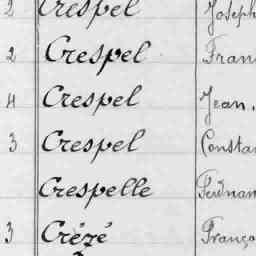 2 Crespel Joseph
2 Crespel Fran
4 Crespel Jean.
3 Crespel Constan
Crespelle Ferdinan
3 Crézé Franço